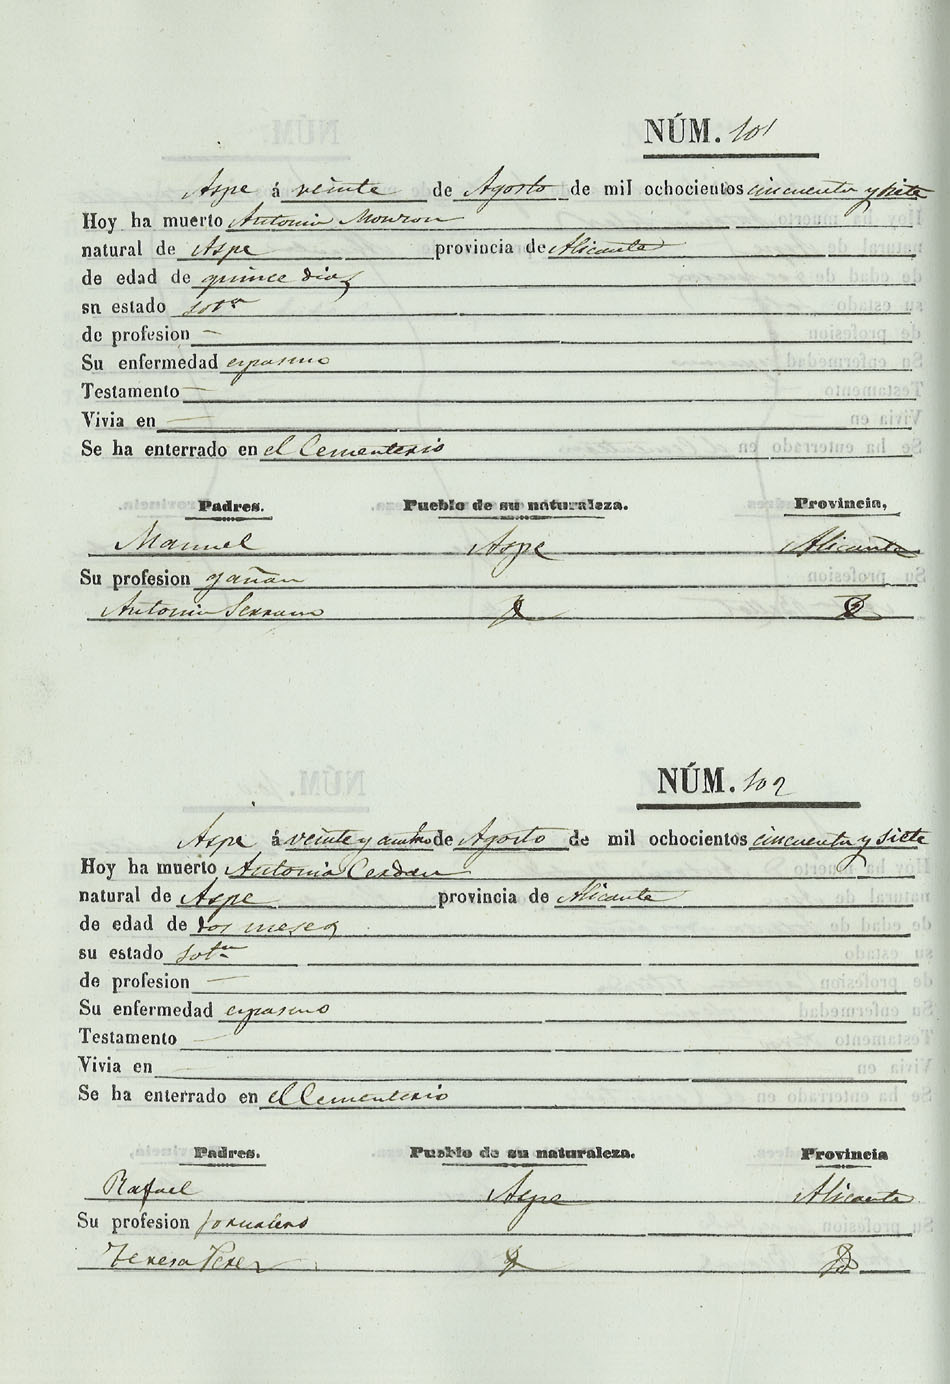 NÚM. 101
Aspe á veinte de Agosto de mil ochocientos cincuenta y siete
Hoy ha muerto Antonio Monzon
natural de Aspe provincia de Alicante
de edad de quince dias
sn estado
de profesion —
Su enfermedad espasmo
Testamento —
Vivia en —
Se ha enterrado en el Cementerio
Padres. Pueblo de su naturaleza. Provincia,
Manuel Aspe Alicante
Su profesion gañan
Antonia Serrano
NÚM. 102
Aspe á veinte y cuatro de Agosto de mil ochocientos cincuenta y siete
Hoy ha muerto Antonia Cerdan
natural de Aspe provincia de Alicante
de edad de dos meses
su estado
de profesion —
Su enfermedad espasmo
Testamento —
Vivia en —
Se ha enterrado en el Cementerio
Padres. Pueblo de su naturaleza. Provincia
Rafael Aspe Alicante
Su profesion Jornalero
Teresa Perez